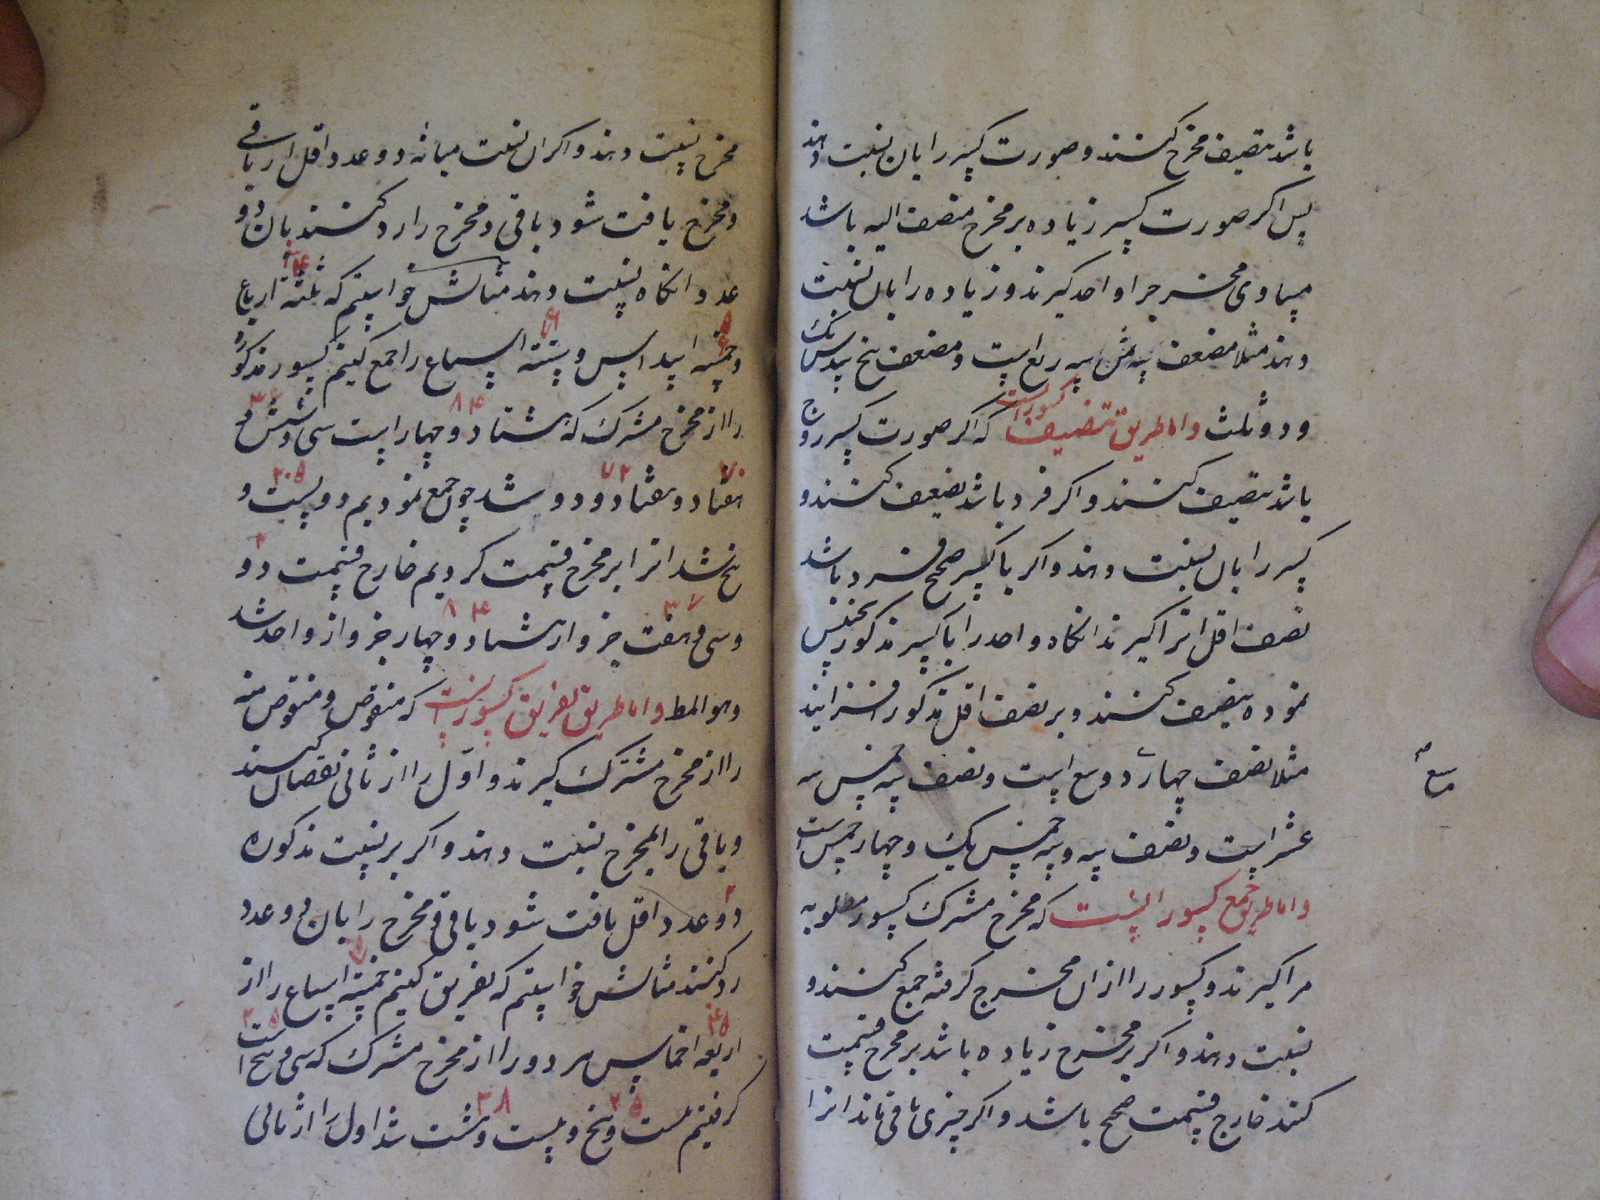 باشد تنصیف مخرج کنند و صورت کسر را بان نسبت دهند
پس اگر صورت کسر زیاده بر مخرج منصف الیه باشد
مساوی مخرج را واحد گیرند و زیاده را بان نسبت
دهند مثلا مضعف سه ثمن سه ربع است و مضعف پنج سدس یک
و دو ثلث و اما طریق تنصیف کسور آنست که اگر صورت کسر زوج
باشد تنصیف کنند و اگر فرد باشد تضعیف کنند و
کسر را بان نسبت دهند و اگر با کسر صحیح فرد باشد
نصف اقل انرا گیرند انگاه واحد را با کسر مذکور تجنیس
نموده تنصیف کنند و بر نصف اقل مذکور افزایند
مثلا نصف چهار تسع دو تسع است و نصف سه خمس سه
عشر است و نصف سه و سه خمس یک و چهار خمس است
و اما طریق جمع کسور اینست که مخرج مشترک کسور مطلوبه
را گیرند و کسور را از ان مخرج گرفته جمع کنند و
نسبت دهند و اگر بر مخرج زیاده باشد بر مخرج قسمت
کنند خارج قسمت صحیح باشد و اگر چیزی باقی ماند انرا
تسع
مخرج نسبت دهند و اگر ان نسبت میانه دو عدد اقل از باقی
و مخرج یافت شود باقی و مخرج را رد کنند بان دو
عدد انگاه نسبت دهند مثالش خواستیم که ثلثة ارباع
و خمسه اسداس و ستة اسباع را جمع کنیم کسور مذکوره
را از مخرج مشترک که هشتاد و چهار است سی و شش و
هفتاد و هفتاد و دو شد چون جمع نمودیم دویست و
پنج شد انرا بر مخرج قسمت کردیم خارج قسمت دو
و سی و هفت جزو از هشتاد و چهار جزو از واحد شد
و هو المط و اما طریق تفریق کسور انست که منقوص و منقوص منه
را از مخرج مشترک گیرند و اول را از ثانی نقصان کنند
و باقی را بمخرج نسبت دهند و اگر بر نسبت مذکوره
دو عدد اقل یافت شود باقی و مخرج را بان دو عدد
رد کنند مثالش خواستیم که تفریق کنیم خمسة اسباع را از
اربعه اخماس هر دو را از مخرج مشترک که سی و پنج است
گرفتیم بیست و پنج و بیست و هشت شد اول را از ثانی